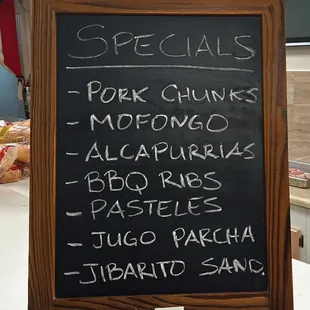 SPECIALS
- PORK CHUNKS
- MOFONGO
- ALCAPURRIAS
- BBQ RIBS
- PASTELES
- JUGO PARCHA
- JIBARITO SAND.